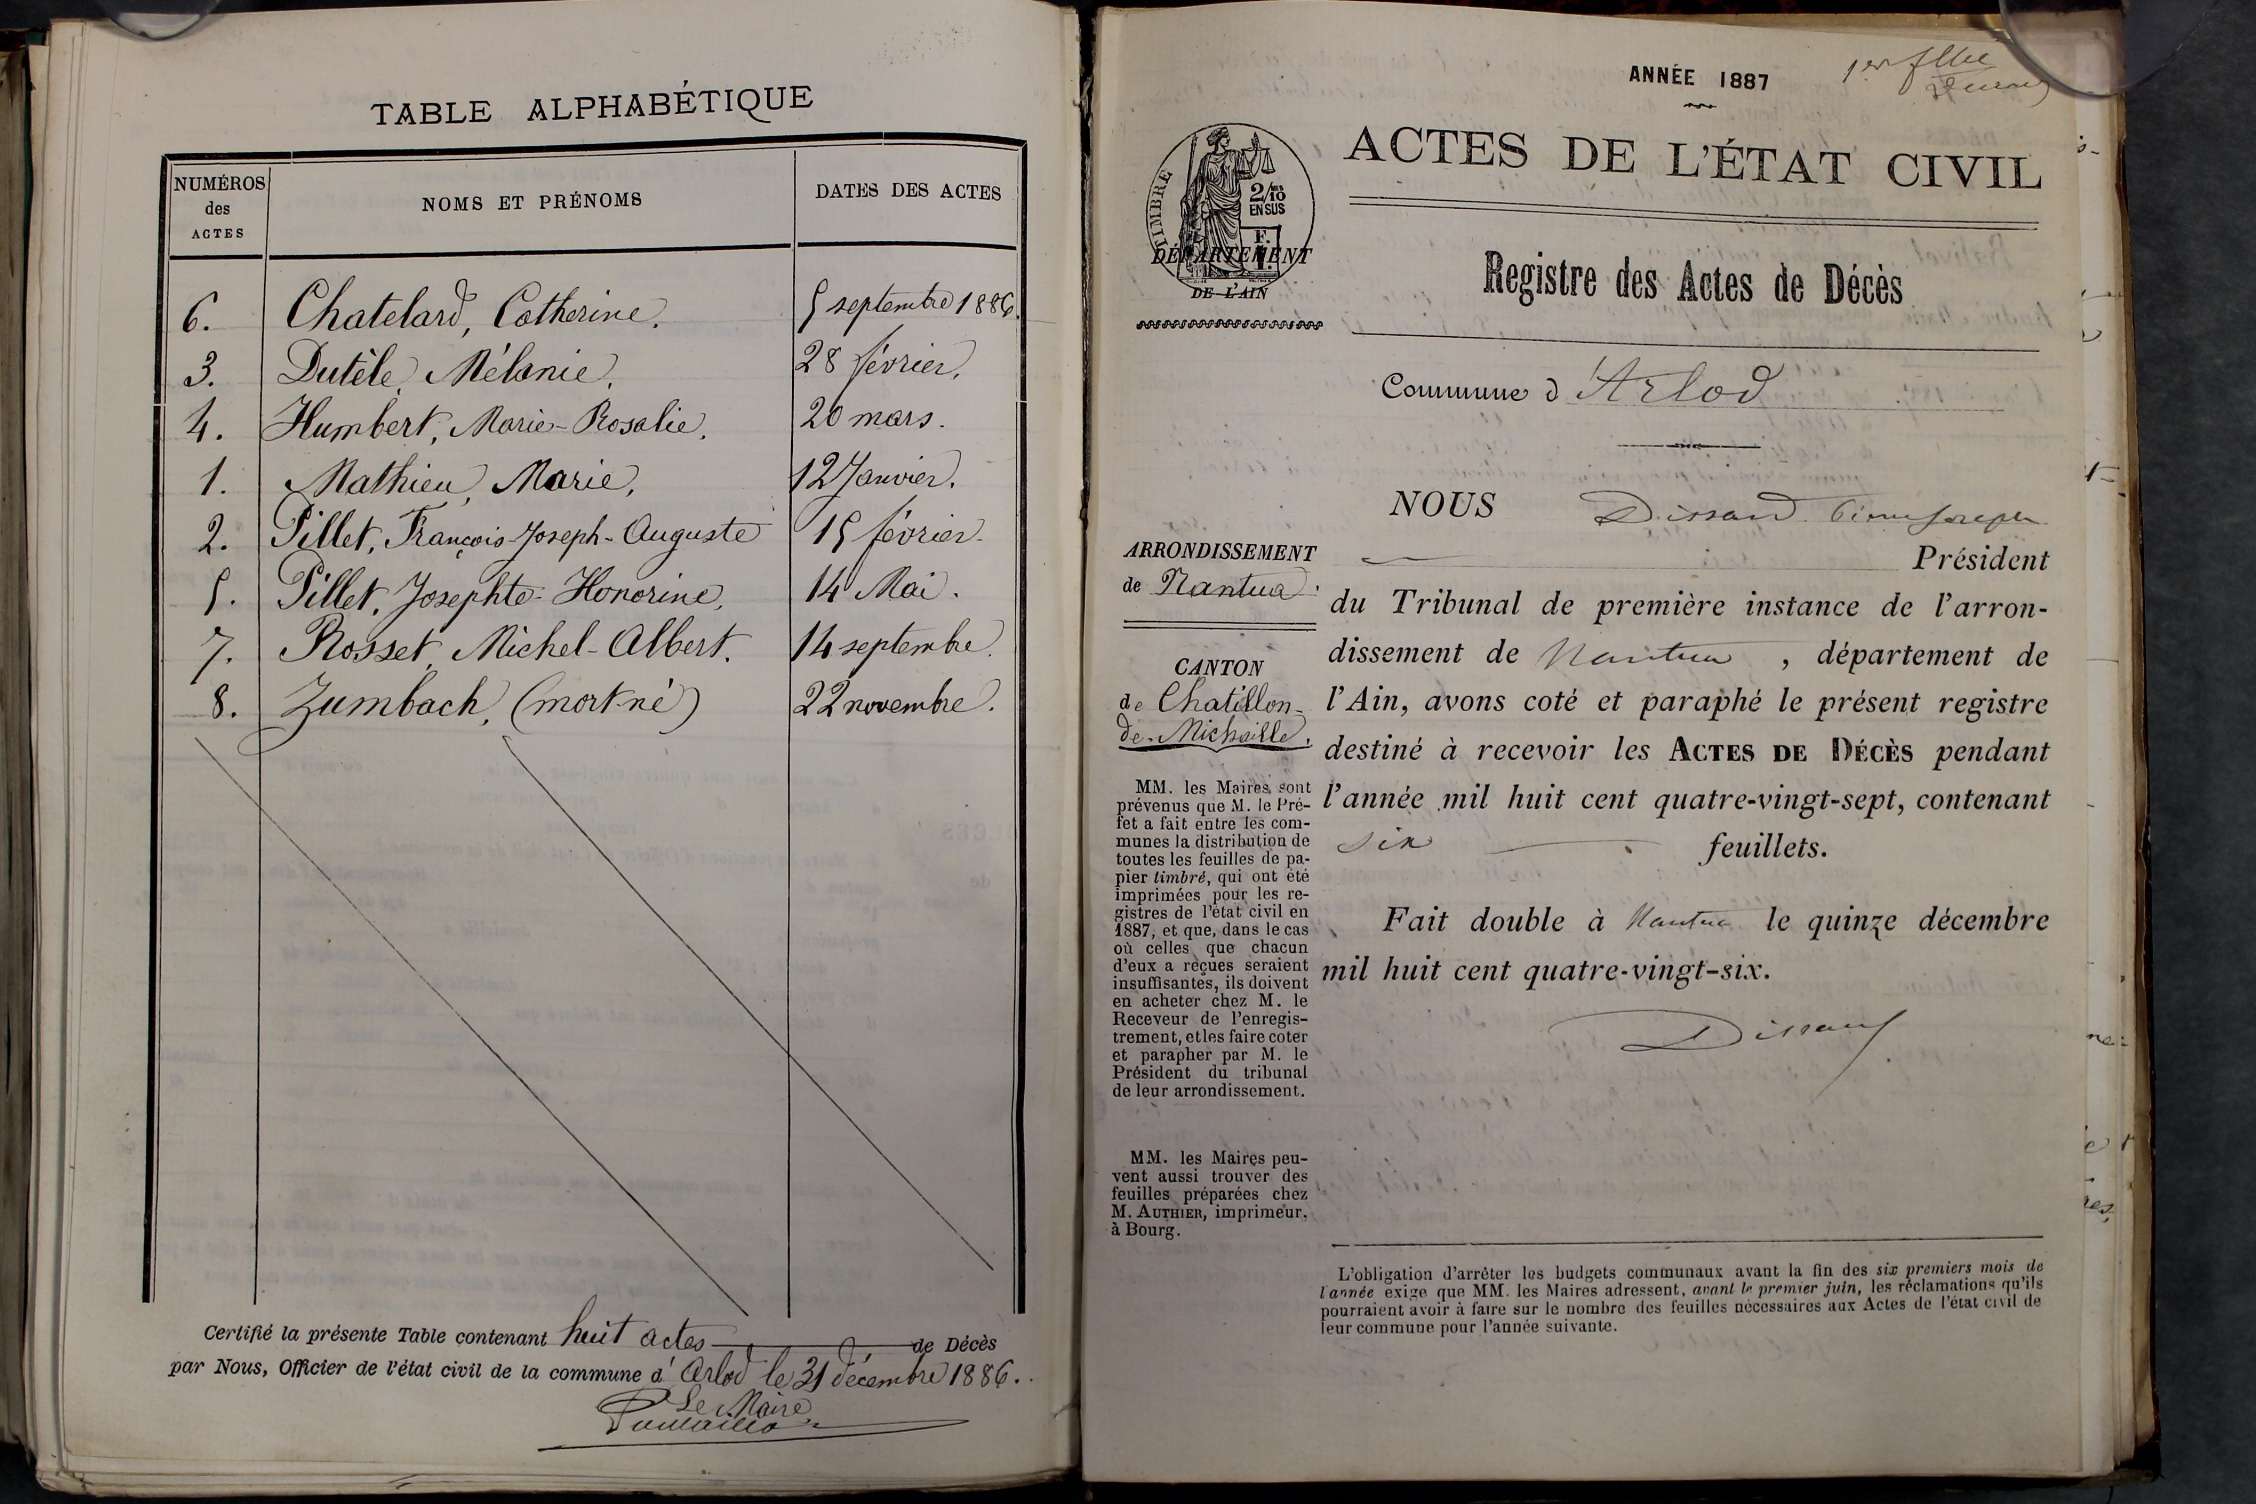 TABLE ALPHABÉTIQUE
NUMÉROS des ACTES
NOMS ET PRÉNOMS
DATES DES ACTES
6. Chatelard, Catherine. 5 septembre 1886.
3. Dutèle, Mélanie. 28 février.
4. Humbert, Marie-Rosalie. 20 mars.
1. Mathieu, Marie. 12 Janvier.
2. Pillet, François-Joseph-Auguste 15 février.
5. Pillet, Josephte-Honorine. 14 Mai.
7. Rosset, Michel-Albert. 14 septembre.
8. Zumbach, (mort-né) 22 novembre.
Certifié la présente Table contenant huit actes de Décès
par Nous, Officier de l'état civil de la commune d'Arlod le 31 décembre 1886.
Le Maire
ANNÉE 1887
TIMBRE
2/10 EN SUS
F.
DÉPARTEMENT
DE L'AIN
ACTES DE L'ÉTAT CIVIL
Registre des Actes de Décès
Commune d'Arlod
ARRONDISSEMENT
de Nantua.
CANTON
de Chatillon-
de-Michaille.
MM. les Maires sont
prévenus que M. le Pré-
fet a fait entre les com-
munes la distribution de
toutes les feuilles de pa-
pier timbré, qui ont été
imprimées pour les re-
gistres de l'état civil en
1887, et que, dans le cas
où celles que chacun
d'eux a reçues seraient
insuffisantes, ils doivent
en acheter chez M. le
Receveur de l'enregis-
trement, et les faire coter
et parapher par M. le
Président du tribunal
de leur arrondissement.
MM. les Maires peu-
vent aussi trouver des
feuilles préparées chez
M. AUTHIER, imprimeur,
à Bourg.
NOUS Dissard
Président
du Tribunal de première instance de l'arron-
dissement de Nantua, département de
l'Ain, avons coté et paraphé le présent registre
destiné à recevoir les ACTES DE DÉCÈS pendant
l'année mil huit cent quatre-vingt-sept, contenant
six feuillets.
Fait double à Nantua le quinze décembre
mil huit cent quatre-vingt-six.
Dissard
L'obligation d'arrêter les budgets communaux avant la fin des six premiers mois de
l'année exige que MM. les Maires adressent, avant le premier juin, les réclamations qu'ils
pourraient avoir à faire sur le nombre des feuilles nécessaires aux Actes de l'état civil de
leur commune pour l'année suivante.